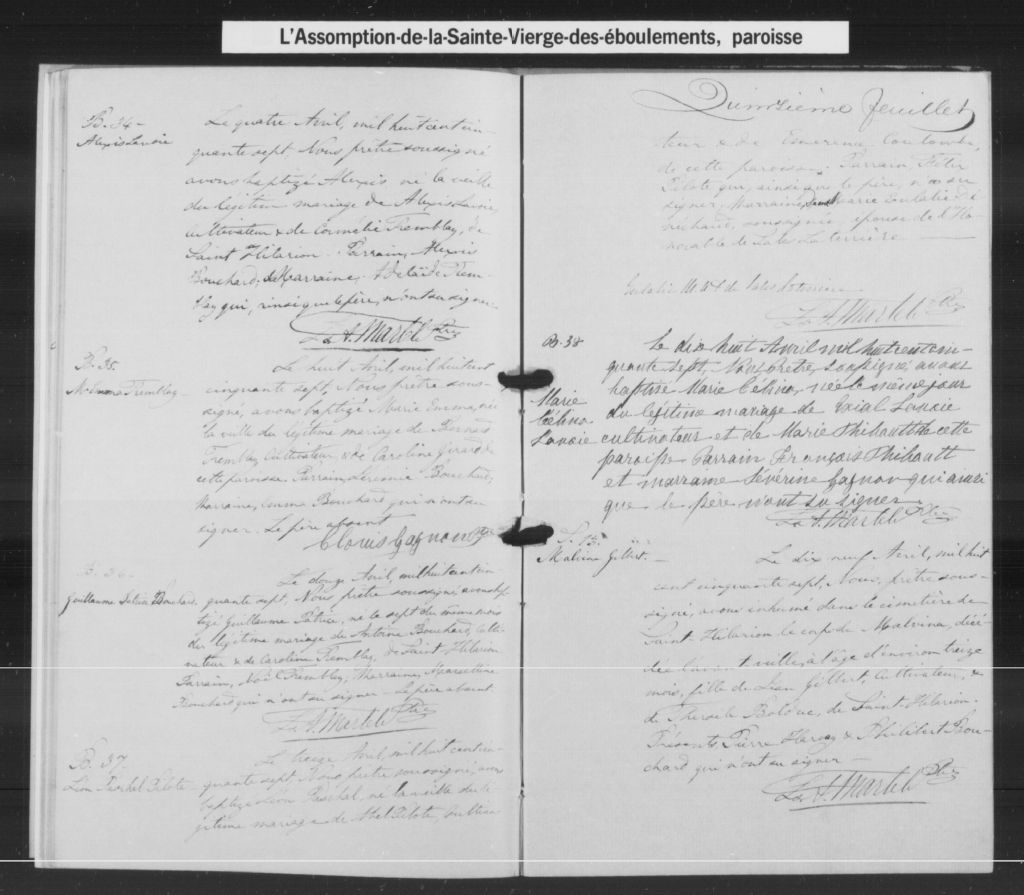 L'Assomption-de-la-Sainte-Vierge-des-éboulements, paroisse
B. 34 -
Alexis Lavoie
Le quatre Avril, mil huit cent cin-
quante sept, Nous prêtre soussigné
avons baptizé Alexis né la veille
du légitime mariage de Alexis Lavoie,
cultivateur & de Cornélie Tremblay, de
Saint Hilarion. Parrain, Alexis
Bouchard; Marraine, Adelaïde Trem-
blay qui, ainsi que le père, n'ont su signer
L. A. Martel Ptre
B. 35.
M. Emma Tremblay
Le huit Avril, mil huit cent
cinquante sept, Nous prêtre sous-
signé, avons baptizé Marie Emma, née
la veille du légitime mariage de
Tremblay Cultivateur & de Caroline Girard de
cette paroisse. Parrain, Bouchard,
Marraine, Emma Bouchard, qui n'ont su
signer. Le père absent
Clovis Gagnon Ptre
B. 36
Guillaume Bouchard.
Le douze Avril, mil huit cent cin-
quante sept, Nous prêtre soussigné avons bap-
tizé Guillaume Patrice, né le sept du même mois
du légitime mariage de Antoine Bouchard, Culti-
vateur & de Caroline Tremblay, de Saint Hilarion
Parrain, Noël Tremblay; Marraine, Marcelline
Bouchard qui n'ont su signer - Le père absent.
L. A. Martel Ptre
B. 37.
Léon Paschal Pilote
Le treize Avril, mil huit cent cin-
quante sept, Nous prêtre soussigné, avons
baptizé Léon Paschal, né la veille du lé-
gitime mariage de Abel Pilote, cultiva-
Quinzième feuillet
teur & de Emerena Coulombe,
de cette paroisse. Parrain,
Pilote qui, ainsi que le père, n'a su
signer. Marraine, Dame Marie
soussignée, épouse de l'Ho-
norable de Sales Laterrière
de Sales Laterrière
L. A. Martel Ptre
B. 38
Marie
Célina
Lavoie
Le dix huit Avril mil huit cent cin-
quante sept, Nous prêtre, soussigné, avons
baptisé Marie Célina, née le même jour
du légitime mariage de Exial Lavoie
cultivateur et de Marie Thibault de cette
paroisse Parrain François Thibault
et marraine Séverine Gagnon qui ainsi
que le père n'ont su signer
L. A. Martel Ptre
S. 13.
Malvina Gilbert. -
Le dix neuf Avril, mil huit
cent cinquante sept, Nous, prêtre sous-
signé, avons inhumé dans le cimetière de
Saint Hilarion le corps de Malvina, décé-
dée l'avant veille, à l'âge d'environ treize
mois, fille de Jean Gilbert, Cultivateur, &
de Bolduc, de Saint Hilarion.
Présents Pierre & Philibert Bou-
chard qui n'ont su signer -
L. A. Martel Ptre